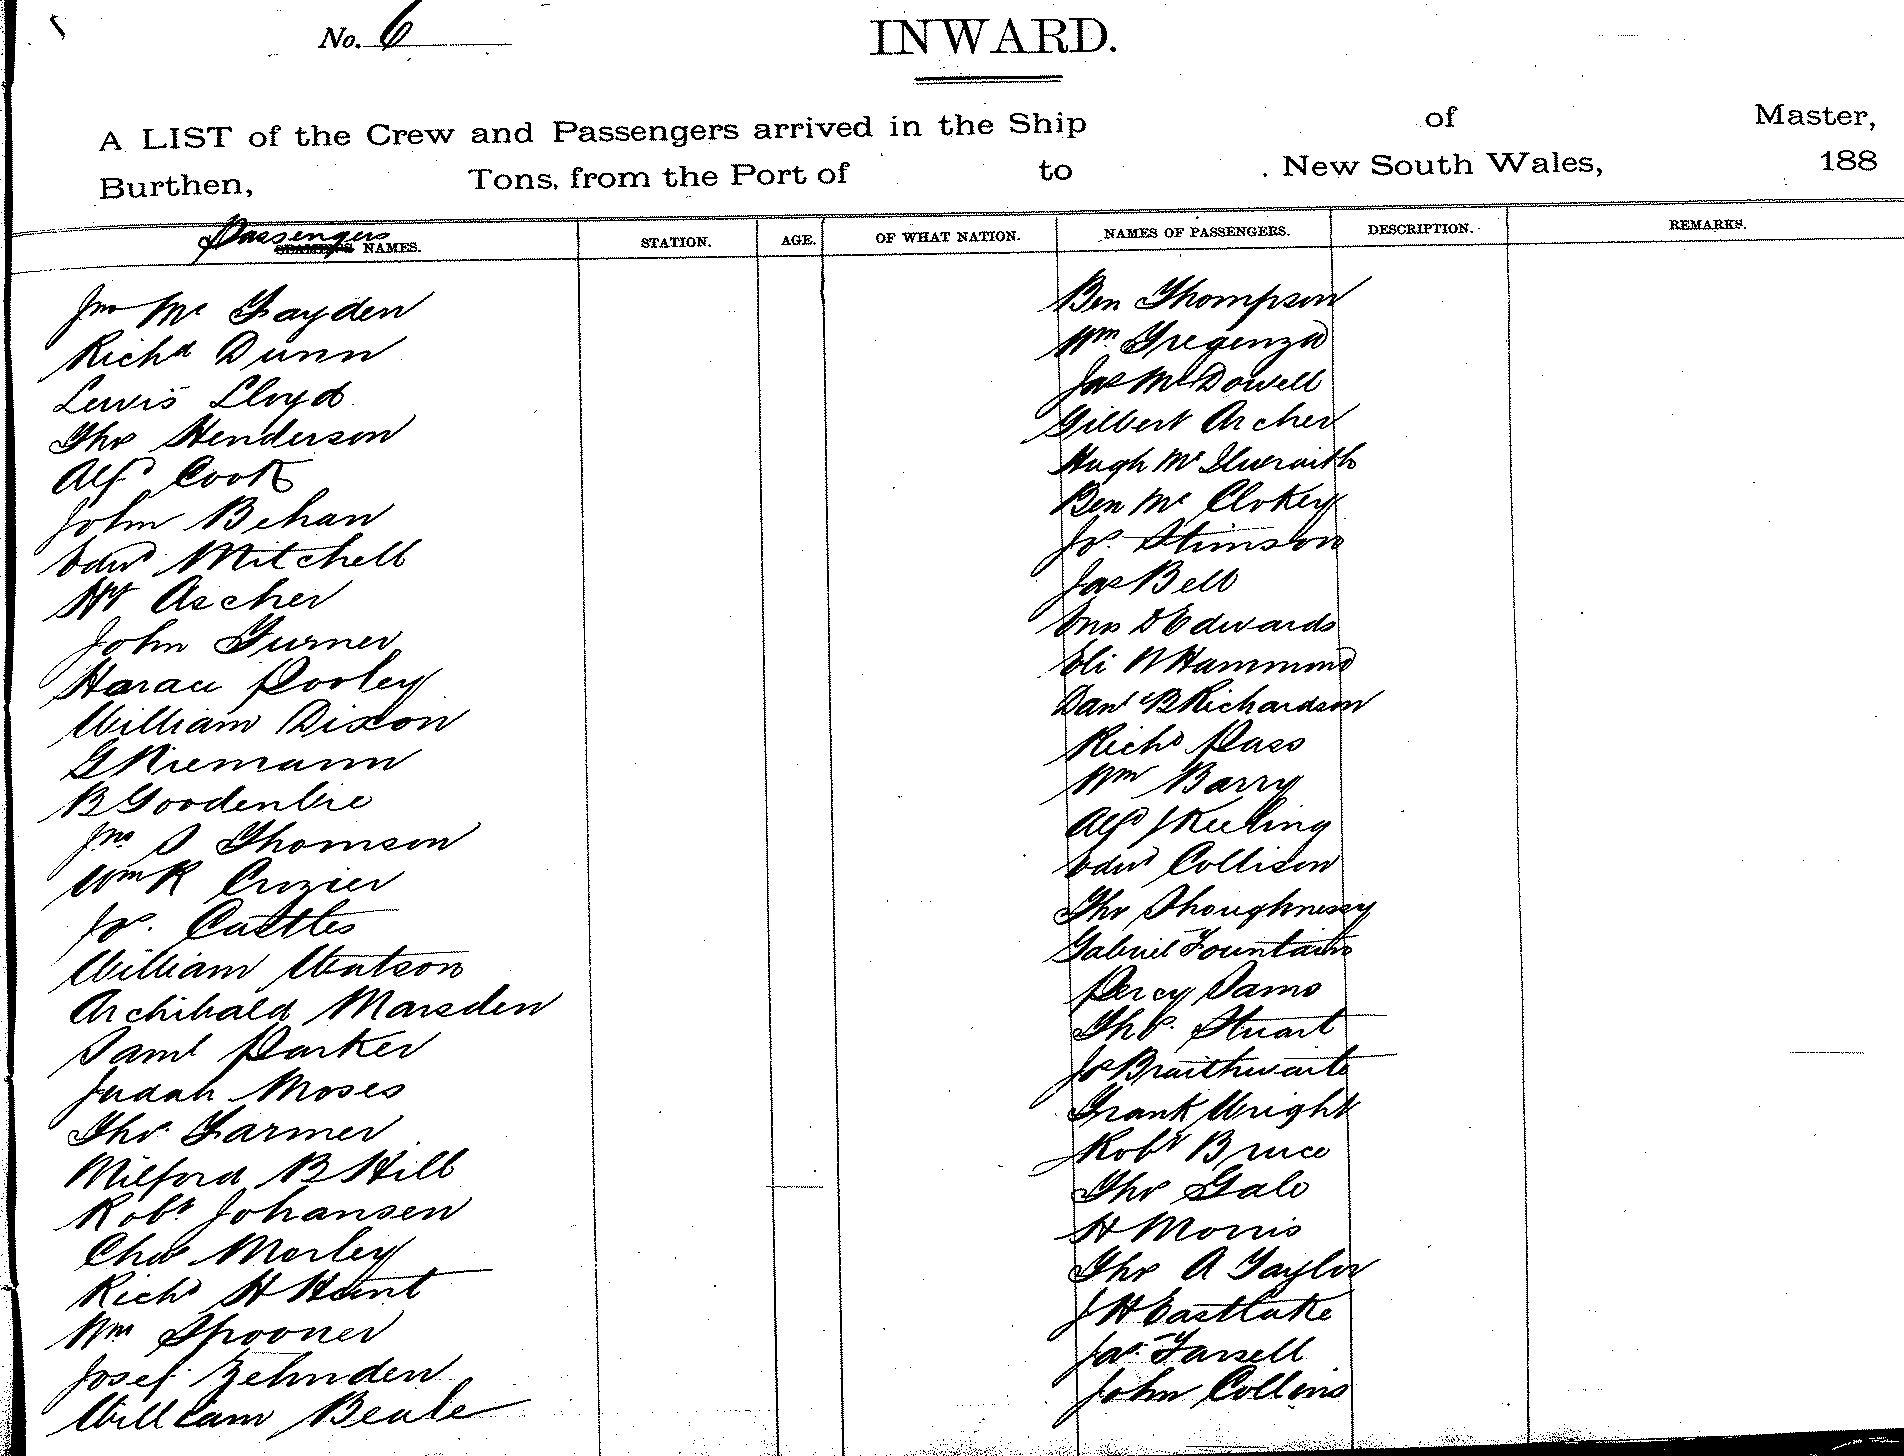 No. 6
INWARD.
A LIST of the Crew and Passengers arrived in the Ship of Master,
Burthen, Tons, from the Port of to New South Wales, 188
Passengers NAMES. STATION. AGE. OF WHAT NATION. NAMES OF PASSENGERS. DESCRIPTION. REMARKS.
Jno Mc Fayden
Richd Dunn
Lewis Lloyd
Tho Henderson
Alfd Cook
John Behan
Edwd Mitchell
Hy Ascher
John Turner
Horace Pooley
William Dixon
G Niemann
B Goodenbre
Jno S Thomson
Wm R Crozier
Jos. Castles
William Watson
Archibald Marsden
Saml Parker
Judah Moses
Tho. Farmer
Milford B Hill
Robt Johansen
Chas Morley
Richd H Hunt
Wm Spooner
Josef Zehnden
William Beale
Ben Thompson
Wm Tregenza
Jas McDowell
Gilbert Archer
Hugh Mc Ilwraith
Ben Mc Clokey
Jos. Stimson
Jas Bell
D Edwards
Eli W Hammond
Danl B Richardson
Richd Pass
Wm Barry
Alfd J Keeling
Edwd Collison
Tho Shoughnessy
Gabriel Fountain
Percy Sams
Tho. Stuart
Jos Braithwaite
Frank Wright
Robt Bruce
Tho Gale
H Morris
Tho A Taylor
J H Eastlake
Jas. Farrell
John Collins